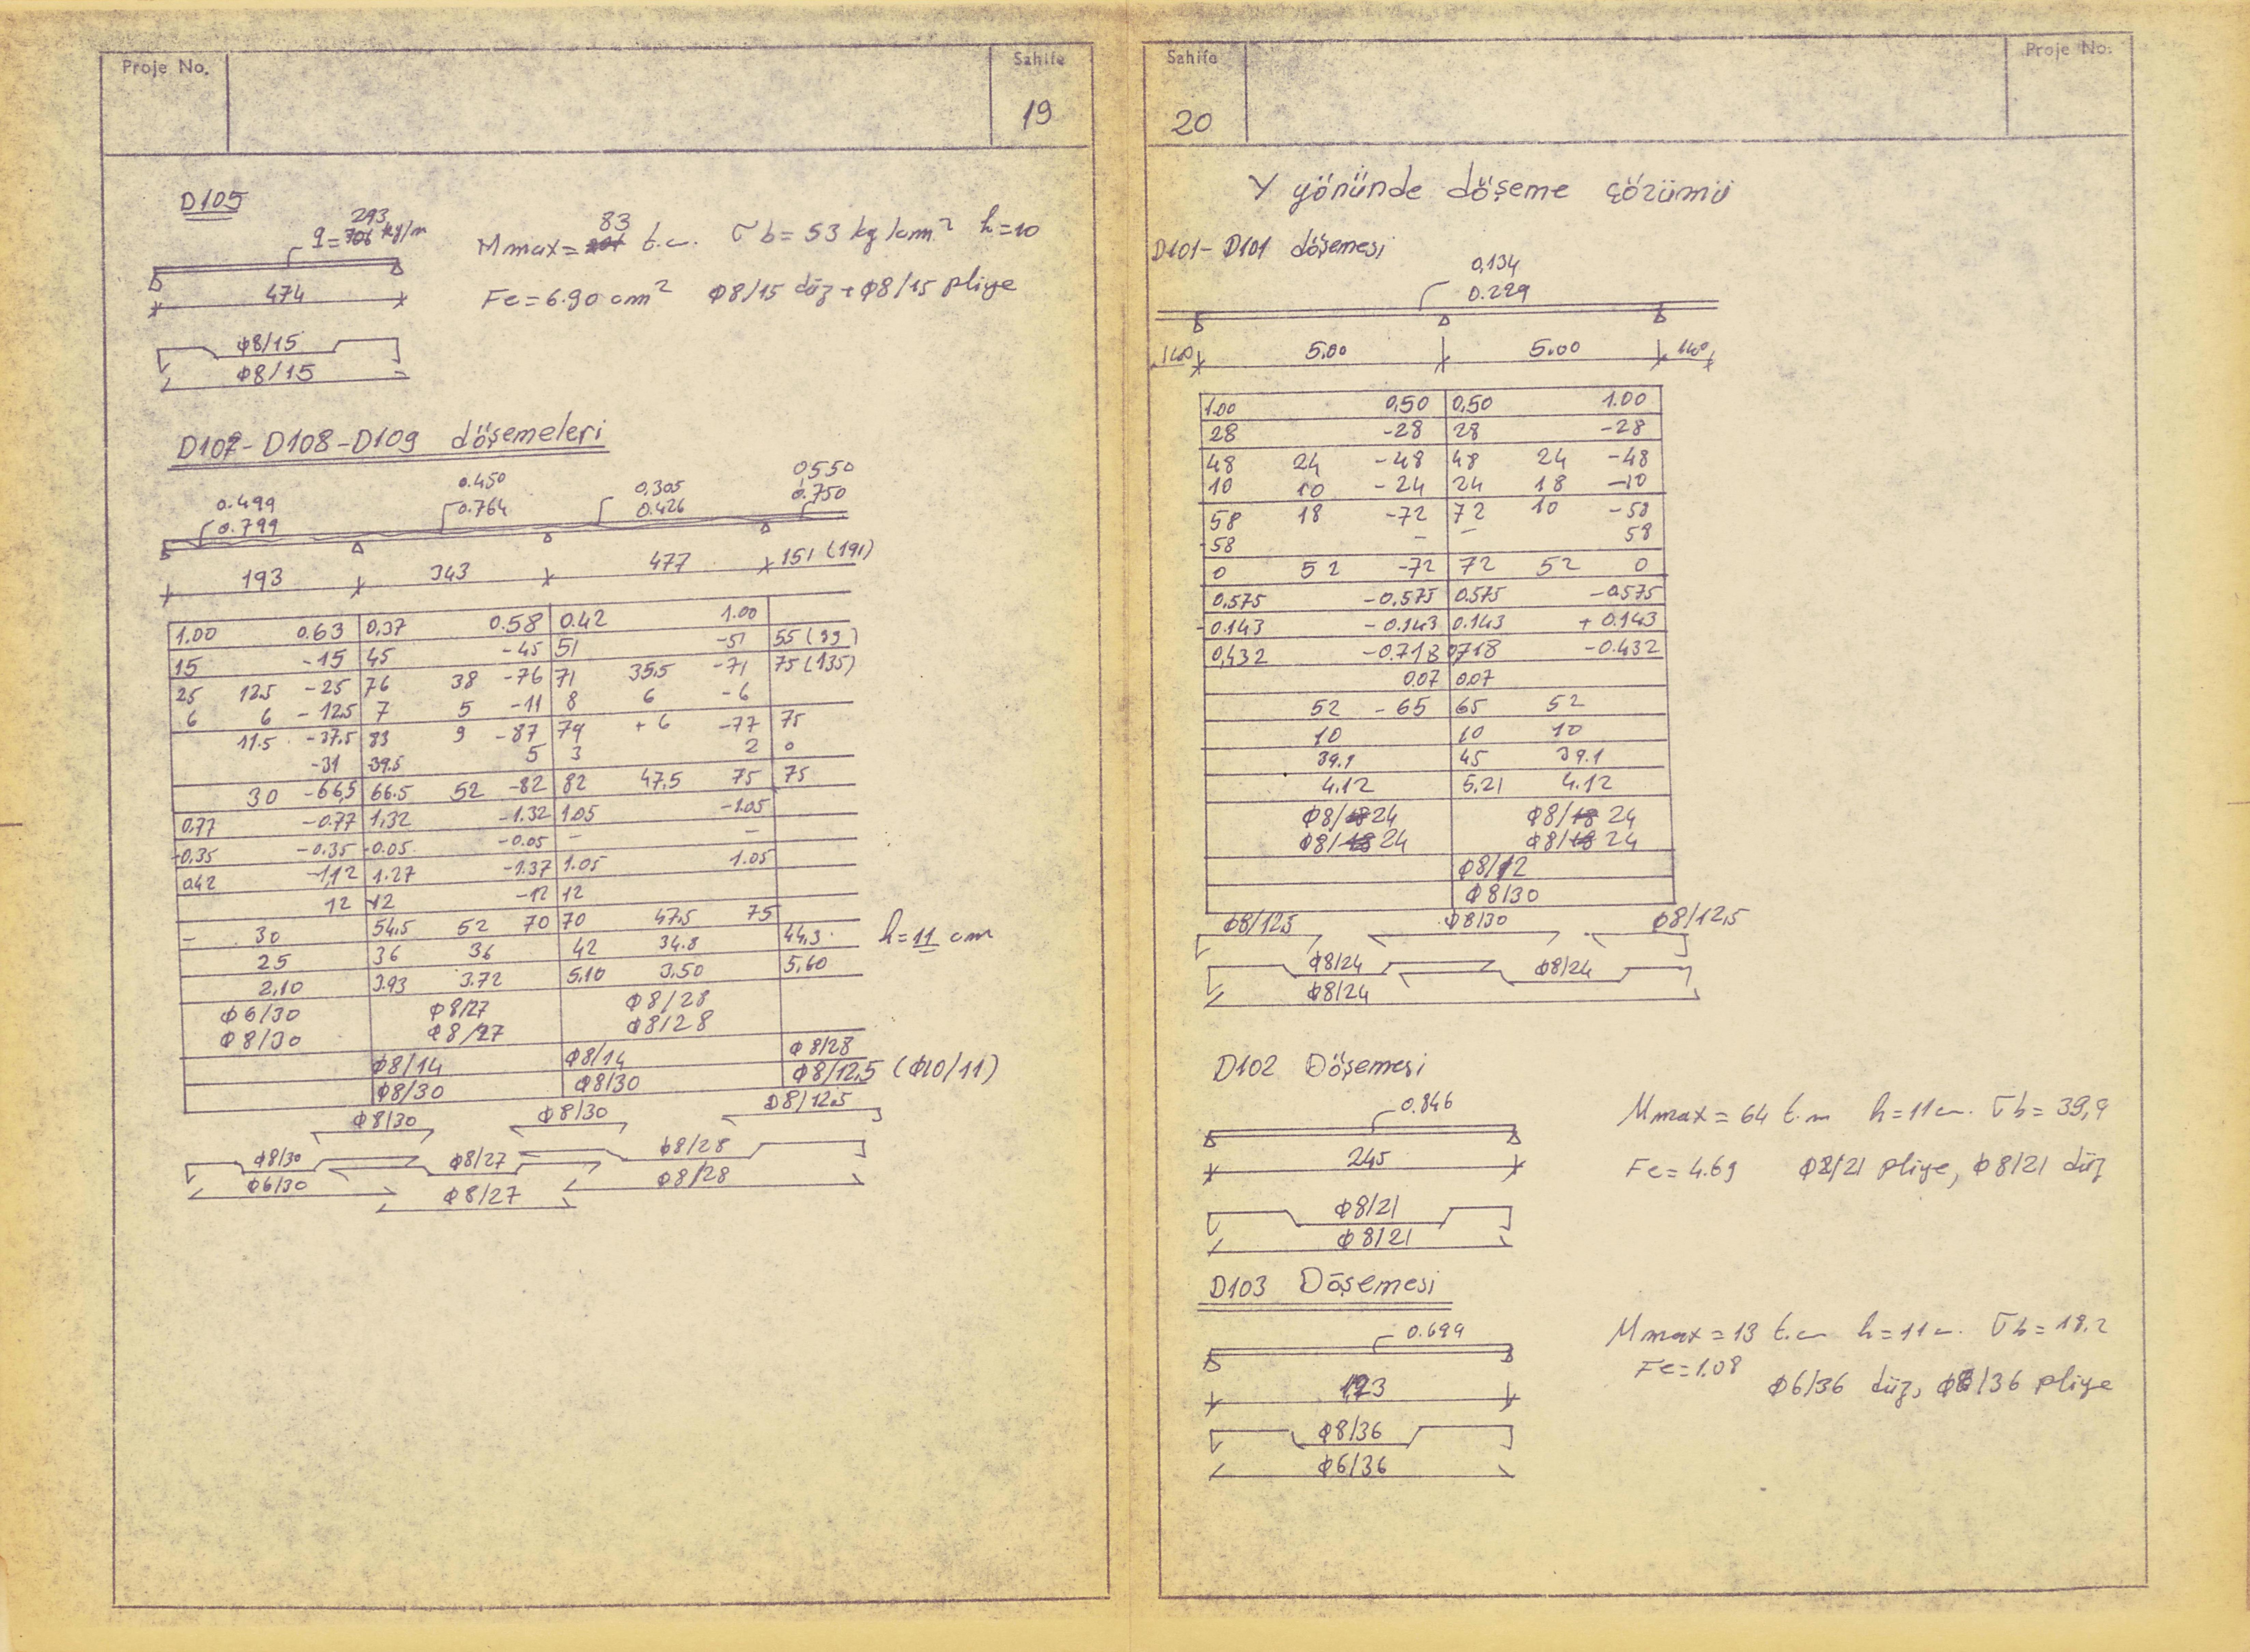 Proje No.
Sahife
19
D105
293
q = kg/m
474
Φ8/15
Φ8/15
83
Mmax = t.c.
σb = 53 kg/cm² h=10
Fe = 6.90 cm² Φ8/15 düz + Φ8/15 pliye
D107 - D108 - D109 döşemeleri
0.499
0.799
0.450
0.764
0,305
0.426
0,550
0.750
193 343 477 151 (191)
1.00 0.63 0,37 0.58 0.42 1.00
15 -15 45 -45 51 -51 55 (99)
25 12.5 -25 76 38 -76 71 35.5 -71 75 (135)
6 6 -12.5 7 5 -11 8 6 -6
11.5 -37.5 83 9 -87 79 +6 -77 75
-31 39.5 5 3 2 0
30 -66,5 66.5 52 -82 82 47.5 75 75
0.77 -0.77 1,32 -1.32 1.05 -1.05
-0.35 -0.35 -0.05 -0.05 - -
0.42 -1,12 1.27 -1.37 1.05 1.05
12 12 -12 12
- 30 54.5 52 70 70 47,5 75
25 36 36 42 34.8 44,3
2,10 3.93 3.72 5.10 3,50 5,60
h = 11 cm
Φ6/30 Φ8/27 Φ8/28
Φ8/30 Φ8/27 Φ8/28
Φ8/14 Φ8/14 Φ8/28
Φ8/30 Φ8/30 Φ8/12,5 (Φ10/11)
Φ8/30 Φ8/30 Φ8/12.5
Φ8/30 Φ8/27 Φ8/28
Φ6/30 Φ8/27 Φ8/28
Sahife
20
Proje No.
Y yönünde döşeme çözümü
D101 - D101 döşemesi
0,134
0.229
140 5.00 5.00 140
1.00 0,50 0,50 1.00
28 -28 28 -28
48 24 -48 48 24 -48
10 10 -24 24 18 -10
58 18 -72 72 10 -58
-58 - - 58
0 52 -72 72 52 0
0.575 -0.575 0.575 -0.575
-0.143 -0.143 0.143 +0.143
0,432 -0.718 0,718 -0.432
0.07 0.07
52 -65 65 52
10 10 10
39.1 45 39.1
4.12 5,21 4.12
Φ8/24 Φ8/24
Φ8/24 Φ8/24
Φ8/12
Φ8/30
Φ8/12,5 Φ8/30 Φ8/12,5
Φ8/24 Φ8/24
Φ8/24
D102 Döşemesi
0.846
245
Φ8/21
Φ8/21
Mmax = 64 t.m h = 11 c. σb = 39,9
Fe = 4.69 Φ8/21 pliye, Φ8/21 düz
D103 Döşemesi
0.699
Φ8/36
Φ6/36
Mmax = 13 t.c h = 11 c. σb = 18.2
Fe = 1.08
Φ6/36 düz, Φ8/36 pliye